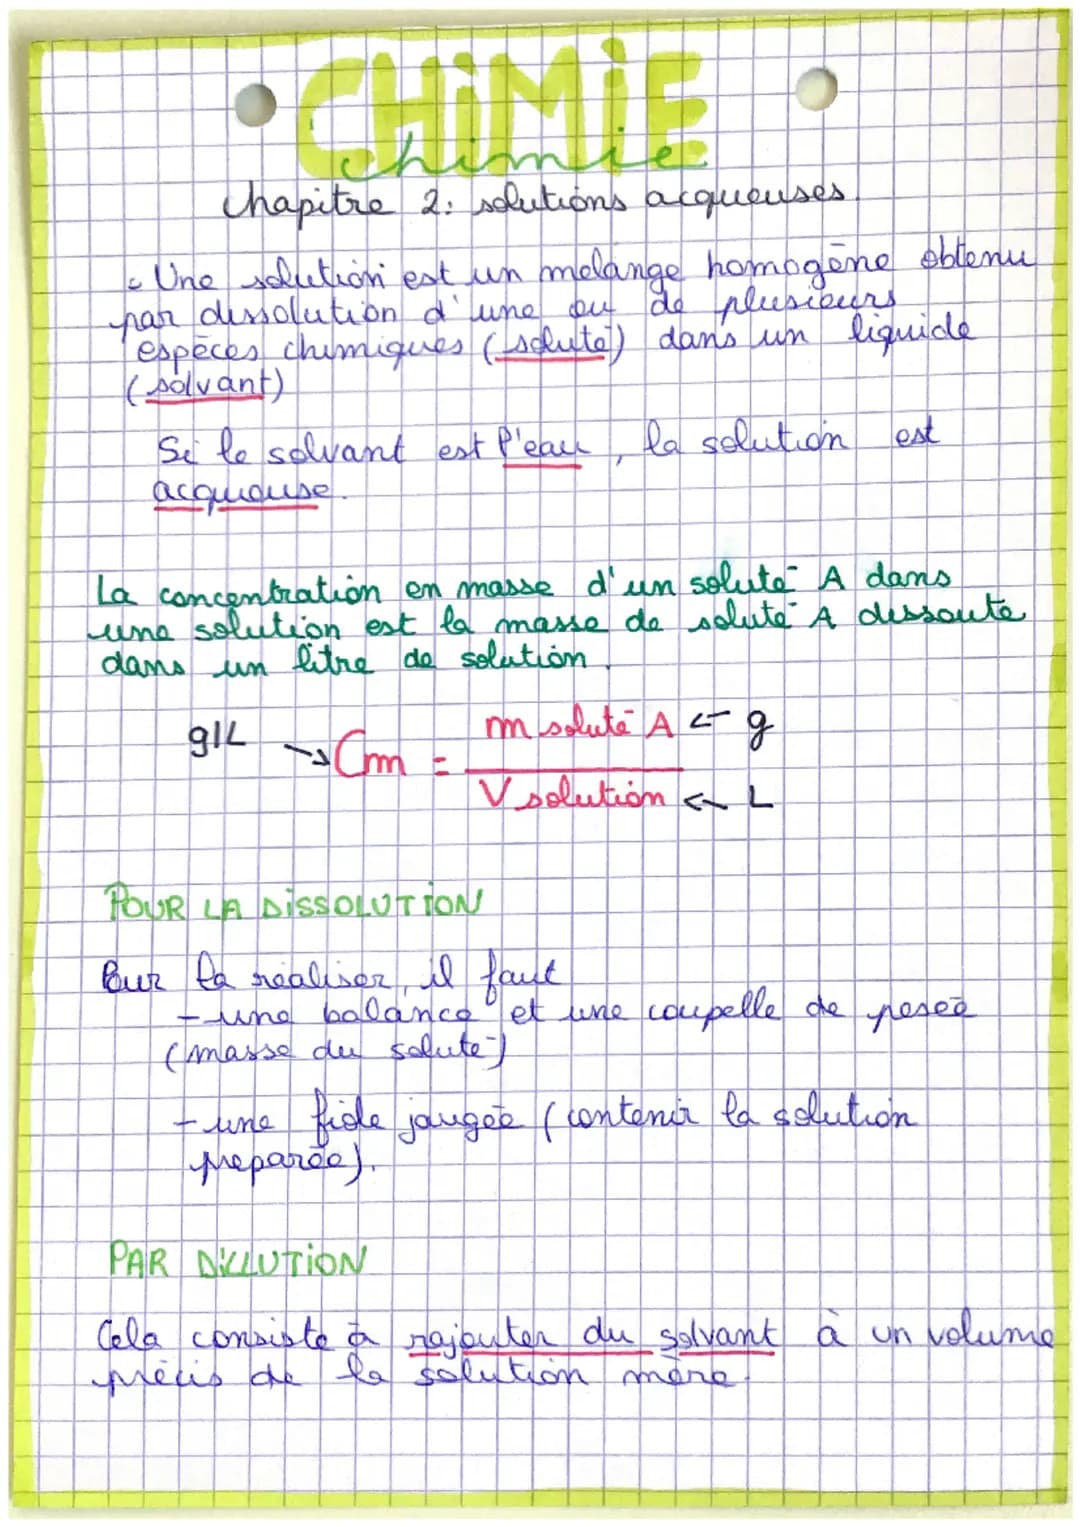 CHiMiE
chimie
chapitre 2: solutions acqueuses.
- Une solution est un mélange homogène obtenu
par dissolution d'une ou de plusieurs
espèces chimiques (soluté) dans un liquide
(solvant)
Si le solvant est l'eau, la solution est
acqueuse.
La concentration en masse d'un soluté A dans
une solution est la masse de soluté A dissoute
dans un litre de solution.
g/L → Cm = m soluté A ← g
V solution ← L
POUR LA DiSSOLUTiON
Pour la réaliser, il faut
- une balance et une coupelle de pesée
(masse du soluté)
- une fiole jaugée (contenir la solution
préparée).
PAR DiLLUTiON
Cela consiste à rajouter du solvant à un volume
précis de la solution mère.